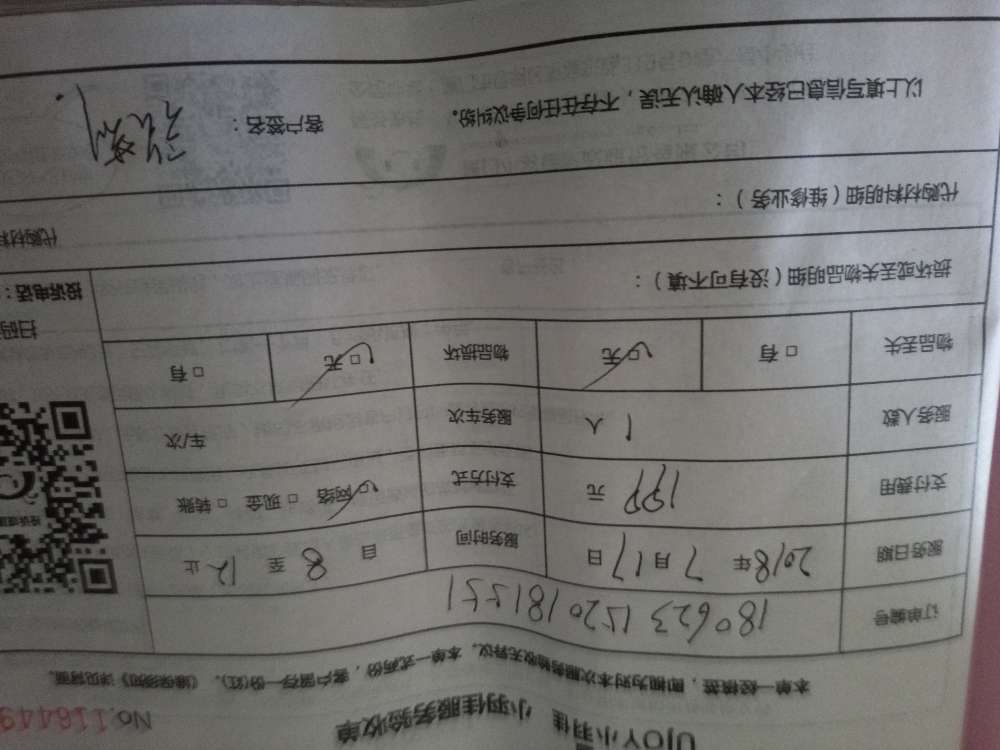 UJOY小羽佳 小羽佳服务验收单
No.116449
本单一经核签，即视为对本次服务验收无异议。本单一式两份，客户留存一份(红)。《细保须知》详见背面。
订单编号 1806231520181551
服务日期 2018年 7月17日 服务时间 自 8 至 12 止
支付费用 199 元 支付方式 □网络 □现金 □转账
服务人数 1 人 服务车次 车/次
物品丢失 □有 □无 物品损坏 □无 □有
扫码
投诉电话：
损坏或丢失物品明细（没有可不填）：
代购材料明细（维修业务）：
代购材料
以上填写信息已经本人确认无误，不存在任何争议纠纷。
客户签名：